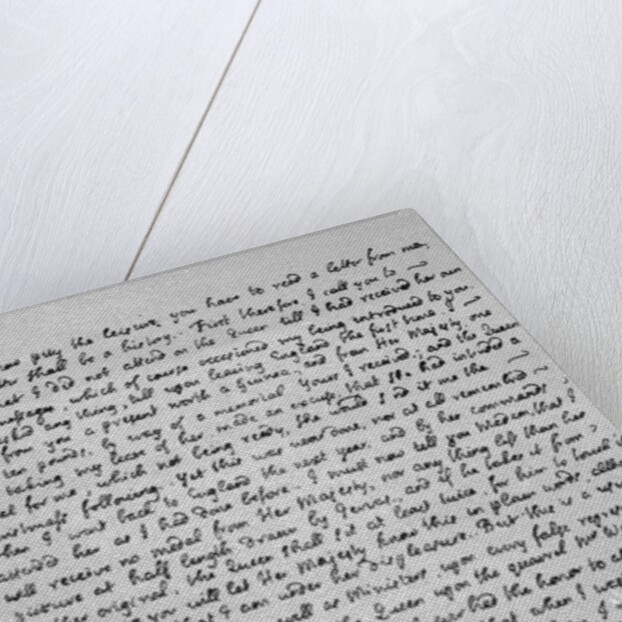 now pity the leisure you have to read a letter from me,
shall be a history. First therefore I call you to
that I did not attend on the Queen till I had received her own
messages, which of course occasioned my being introduced to you.
asked any thing, till upon leaving England the first time, I
from you a present worth a Guinea, and from Her Majesty one
ten pounds, by way of a memorial. Yours I received; and the Queen
taking my leave of her made an excuse, that she had intended a
medal for me, which not being ready, she would send it me the
Christmass following. Yet this was never done, nor at all remembred
when I went back to England the next year, and by her commands
attended her as I had done before. I must now tell you Madam that I
will receive no medal from Her Majesty, nor any thing less than her
picture at half length, drawn by Jervas; and if he takes it from
original, the Queen shall sit at least twice for him to touch it
you will let Her Majesty know this in plain words, although
that I am under her displeasure. But this is a
well as Ministers, upon every false
the Queen upon the quarrel Mr
had the honor to
that when I was